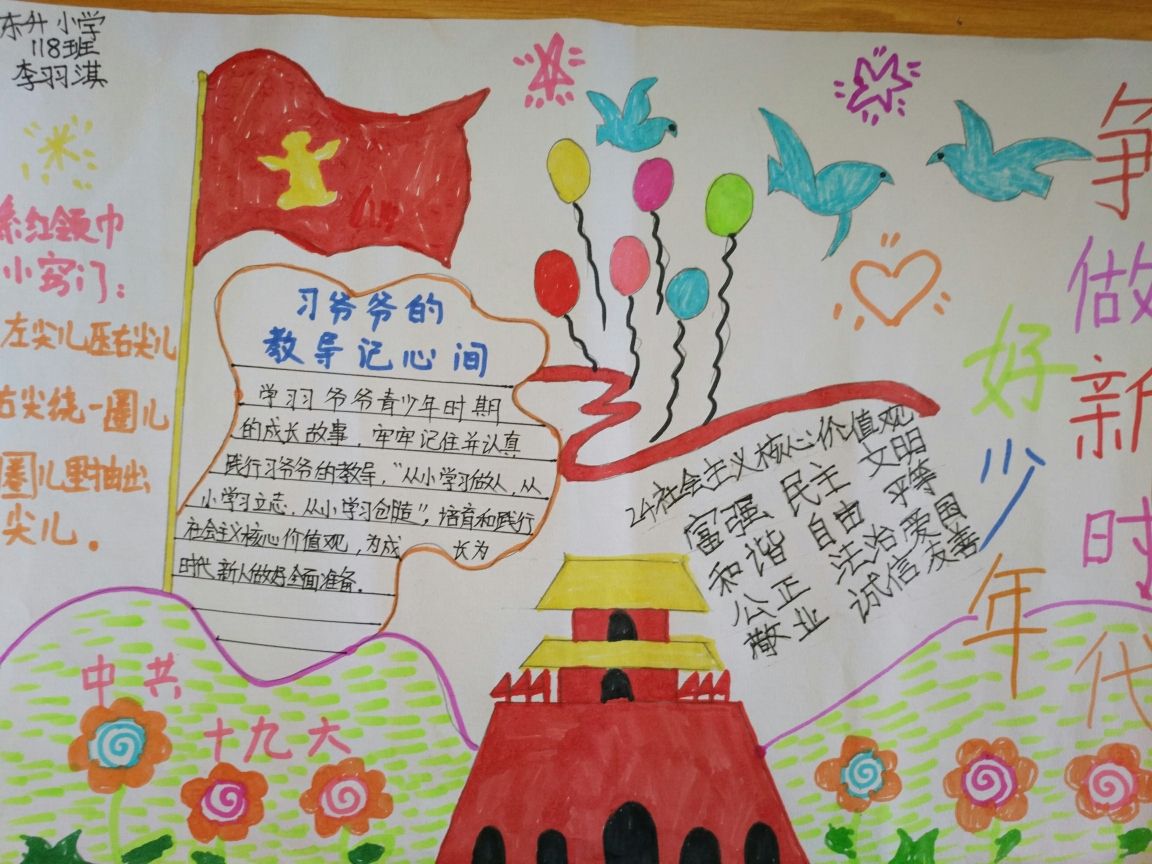 东升小学
118班
李羽淇
系红领巾
小窍门：
左尖儿压右尖儿
右尖绕一圈儿
圈儿里抽出
尖儿．
习爷爷的
教导记心间
学习习爷爷青少年时期
的成长故事，牢牢记住并认真
践行习爷爷的教导，“从小学习做人，从
小学习立志，从小学习创造”，培育和践行
社会主义核心价值观，为成 长为
时代新人做好全面准备．
24社会主义核心价值观
富强 民主 文明
和谐 自由 平等
公正 法治 爱国
敬业 诚信 友善
争做新时代
好少年
中共
十九大